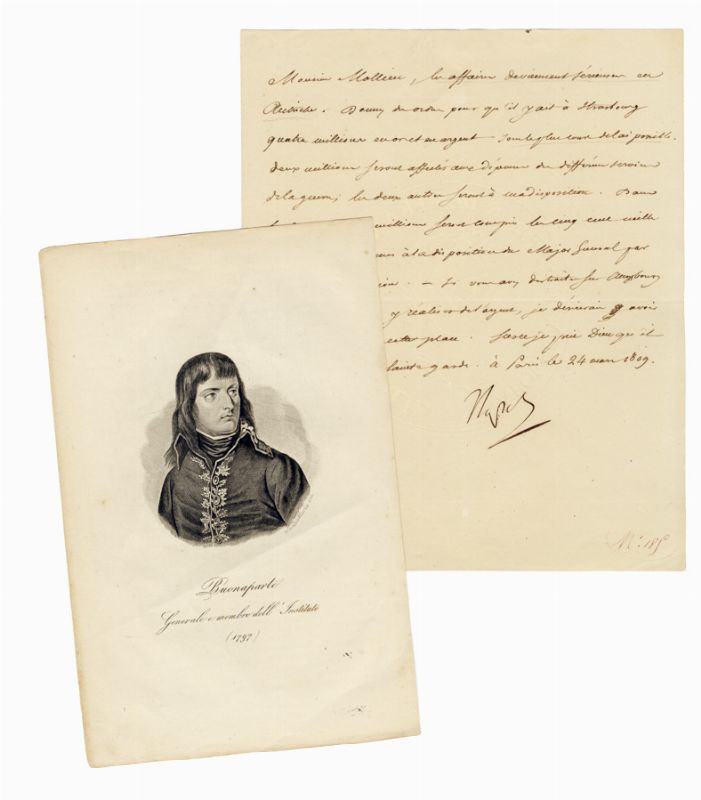 Monsieur Mollien, les affaires deviennent sérieuses en
Autriche. Donnez des ordres pour qu'il y ait à Strasbourg
quatre millions en or et en argent dans le plus court delai possible.
deux millions seront affectés aux dépenses des différens services
de la guerre, les deux autres seront à ma disposition. Dans
millions seront compris les cinq cent mille
à la disposition du Major General par
Si vous avez des traites sur Augsbourg
y réaliser de l'argent, je désirerais y avoir
cette place. Sur ce je prie Dieu qu'il
sainte garde. à Paris le 24 mars 1809.
Nap
N.º 185
Buonaparte
Generale e membro dell'Instituto
(1797)